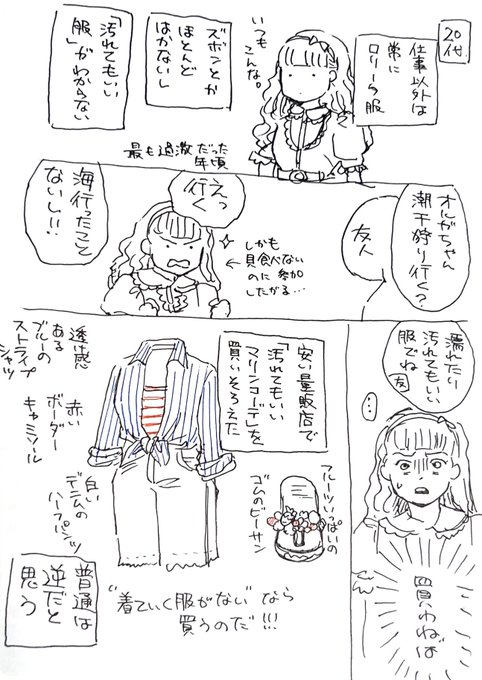 20代
仕事以外は
常に
ロリータ服
いつも
こんな。
ズボンとか
ほとんど
はかないし
「汚れてもいい
服」がわからない
最も過激だった
年頃
オルガちゃん
潮干狩り行く?
友人
えっ
行く
海行ったこと
ないし!!
しかも
貝食べない
のに参加
したがる…
濡れたり
汚れてもいい
服でね
友
…
買わねば
安い量販店で
「汚れてもいい
マリンコーデ」を
買いそろえた
透け感
ある
ブルーの
ストライプ
シャツ
赤い
ボーダー
キャミソール
白い
デニムの
ハーフパンツ
フルーツいっぱいの
ゴムのビーサン
"着ていく服がない"なら
買うのだ!!!
普通は
逆だと
思う